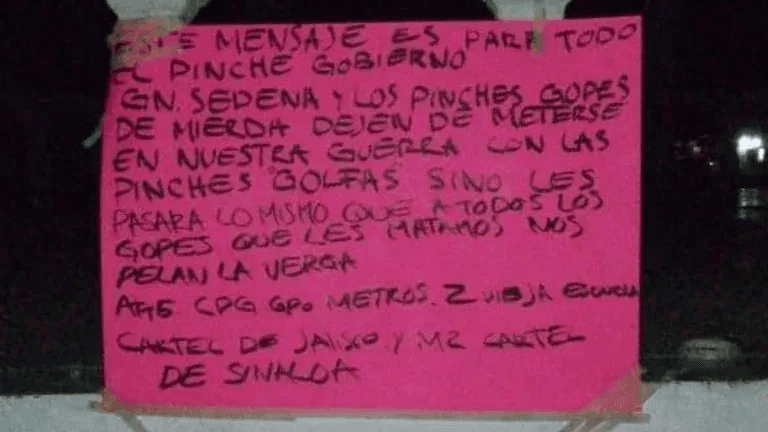 ESTE MENSAJE ES PARA TODO
EL PINCHE GOBIERNO
GN. SEDENA Y LOS PINCHES GOPES
DE MIERDA DEJEN DE METERSE
EN NUESTRA GUERRA CON LAS
PINCHES GOLFAS SINO LES
PASARA LO MISMO QUE A TODOS LOS
GOPES QUE LES MATAMOS NOS
PELAN LA VERGA
ATTE. CDG GPO METROS. Z VIEJA ESCUELA
CARTEL DE JALISCO. Y MZ CARTEL
DE SINALOA